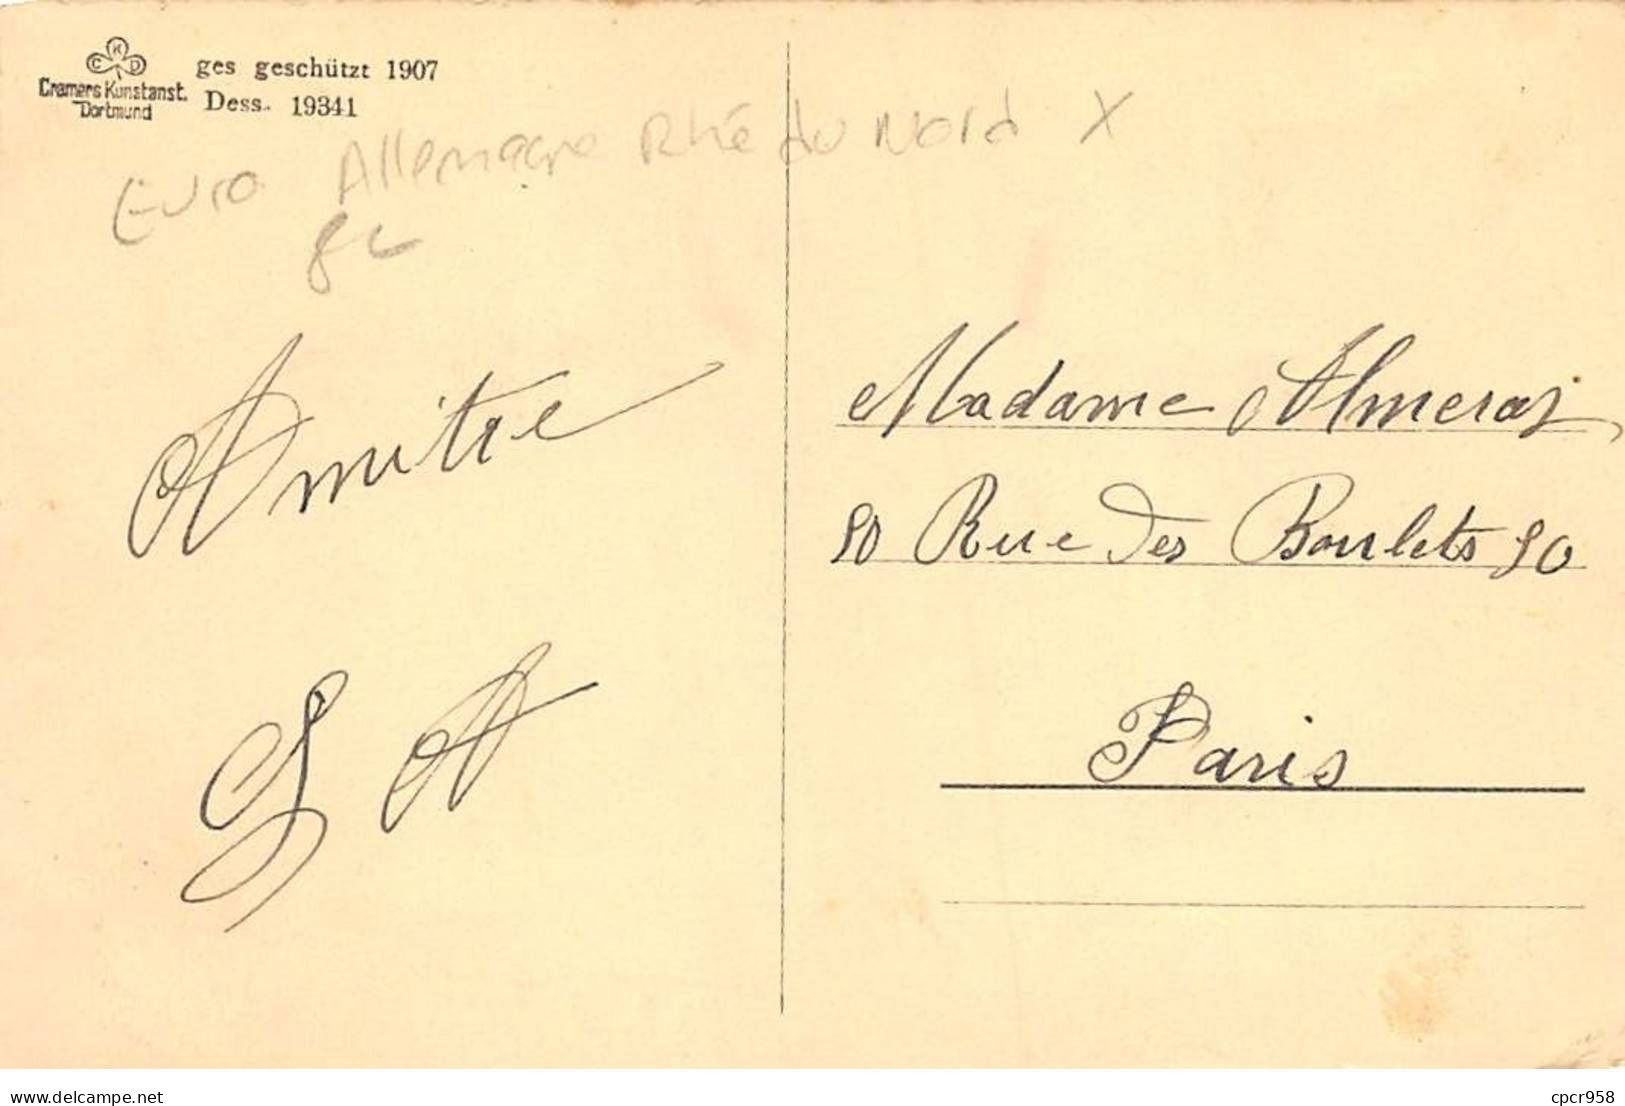 K
C D
Cramers Kunstanst.
Dortmund
ges geschützt 1907
Dess. 19341
Euro Allemagne Rhé du Nord X
8L
Amitre
S A
Madame Almeras
90 Rue des Boulets 90
Paris
delcampe.net
cpcr958